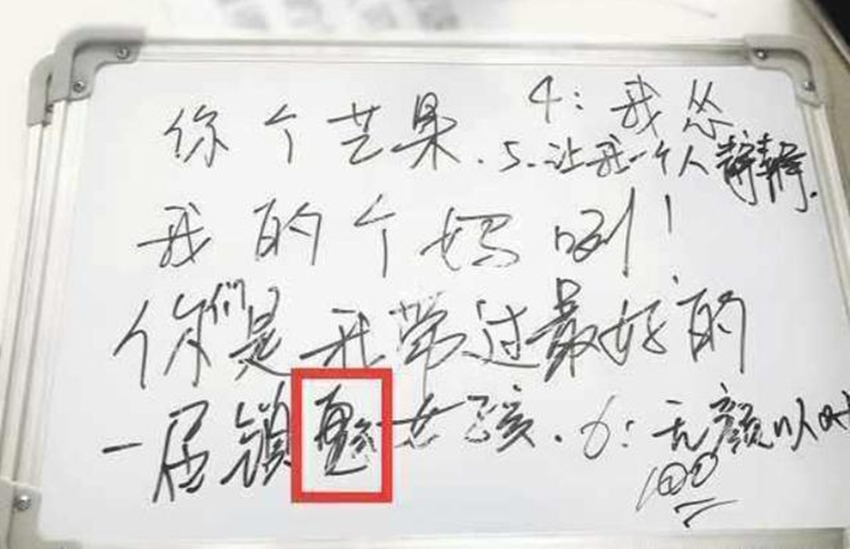 你个芒果.
4：我怂
5.让我一个人静静.
我的个妈咧！
你们是我带过最好的
一届镇女孩.
6：无颜以对
100